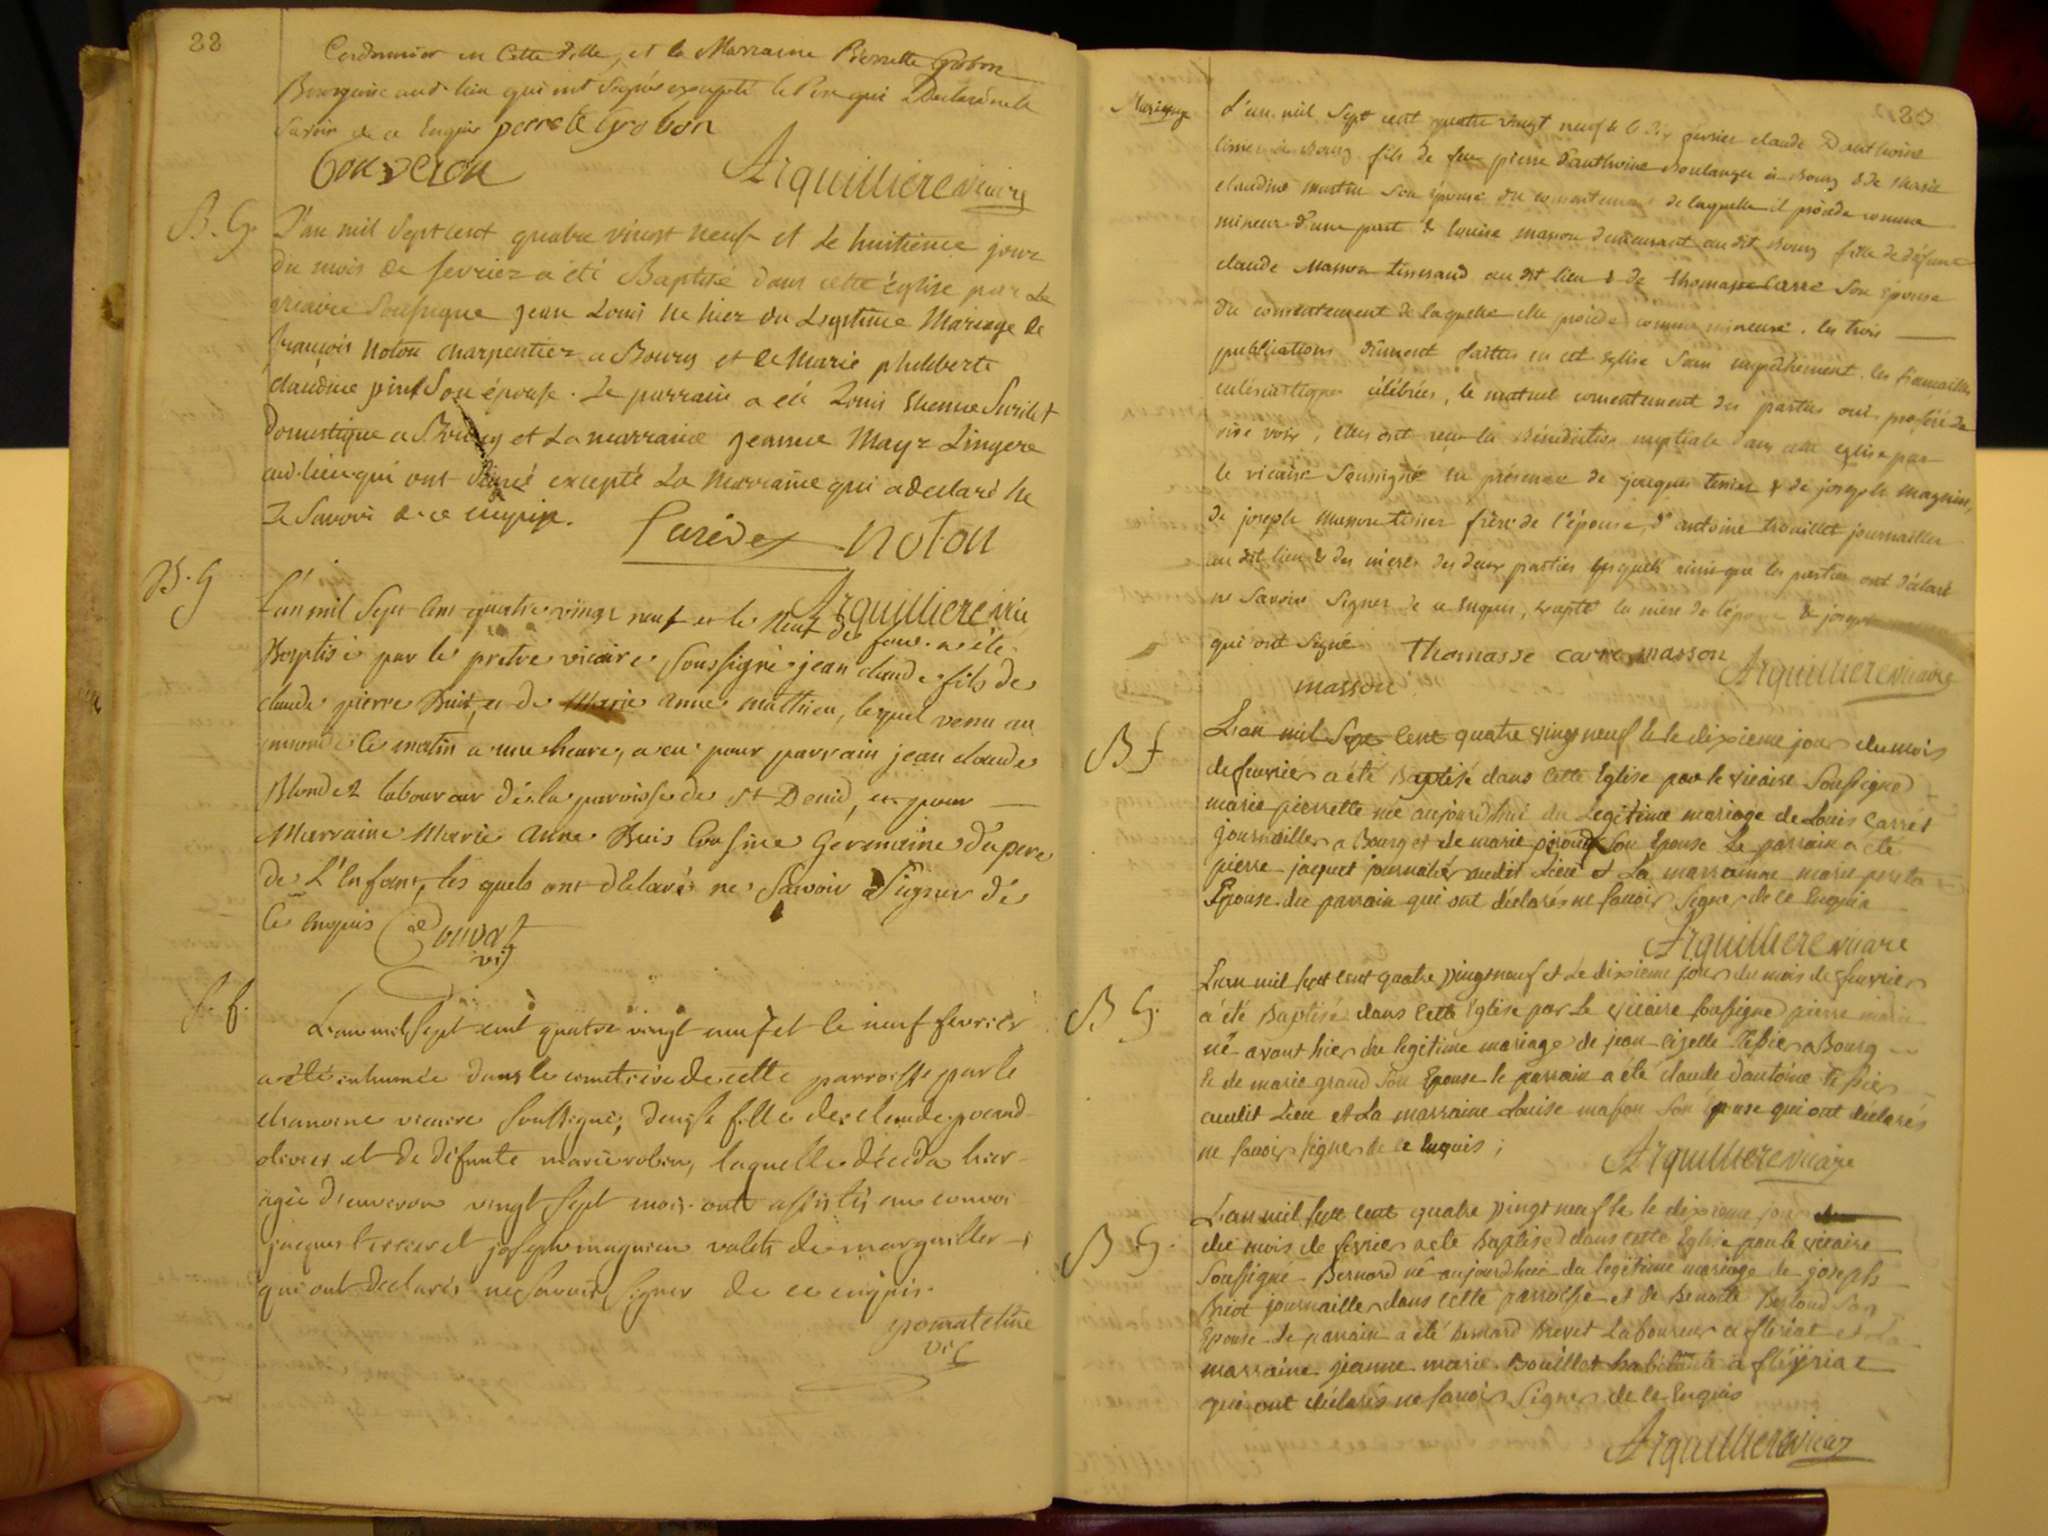 22
Cordonnier en Cette Ville, et la Marraine Pierrette Grobon
Bourgeoise aud. lieu qui ont signés excepté le Pere qui a Declaré ne le
savoir de ce Enquis perrete Grobon
Arquilliere vicaire
B. G. L'an mil sept cent quatre vingt neuf et le huitieme jour
du mois de fevrier a été Baptisé dans cette Eglise par Le
vicaire soussigné jean Louis né hier du Legitime Mariage de
françois Noton charpentier a Bourg et de Marie philiberte
claudine pin Son épouse. Le parrain a été Louis Etienne
Domestique a Bourg et La marraine jeanne Mayr Lingere
aud. lieu qui ont Signé excepté La Marraine qui a declaré ne
Le Savoir de ce enquise.
Noton
Arquilliere vic
B. G L'an mil Sept Cent quatre vingt neuf et le Neuf de fevr. a été
Baptisé par le pretre vicaire soussigné jean claude fils de
claude pierre Buis, et de Marie anne mathieu, lequel venu au
monde Ce matin a une heure, a eu pour parrain jean claude
Blondel labourour de la paroisse de St Denid, et pour
Marraine Marie Anne Buis Cousine Germaine du pere
de L'Enfant, les quels ont déclaré ne Savoir Signer de
Ce enquis
vic
L'an mil sept cent quatre vingt neuf et le neuf fevrier
a été inhumée dans le cimetière de cette parroisse par le
chanoine vicaire soussigné, denise fille de claude
olivier et de défunte marie robin, laquelle décéda hier
agée d'environ vingt sept mois. ont assistés au convoi
jacques terrier et joseph magnien valets de marguillier
qui ont declarés ne savoir signer de ce enquis.
vic
23
Mariage L'an mil sept cent quatre vingt neuf & le dix fevrier claude Danthoine
tissier à Bourg fils de feu pierre Danthoine Boulanger à Bourg & de Marie
claudine Martin son épouse du consentement de laquelle il procède comme
mineur d'une part & louise masson demeurant au dit Bourg fille de défunt
claude Masson tisserand au dit lieu & de thomasse Carre son épouse
du consentement de laquelle elle procède comme mineure. les trois
publications dûment faittes en cet Eglise sans empêchement. les fiançailles
eclésiastiques célébrées, le mutuel consentement des parties oui proféré de
vive voix, elles ont reçu la Bénédiction nuptiale dans cette eglise par
le vicaire soussigné en présence de jacques terrier & de joseph magnien,
de joseph Masson tissier frère de l'épouse, d'antoine trouillet journallier
au dit lieu & des mères des deux parties lesquels ainsi que les parties ont déclaré
ne savoir signer de ce enquis, excepté la mère de l'épouse & joseph
qui ont signé thomasse carre masson
masson Arquilliere vicaire
B f L'an mil Sept Cent quatre vingt neuf & le dixieme jour du mois
de fevrier a été Baptisé dans cette Eglise par le vicaire soussigné
marie pierrette née aujourd'hui du Legitime mariage de Louis Carret
journallier a Bourg et de marie Son Epouse Le parrain a été
pierre jacquet journalier audit Lieu et La marrainne marie
Epouse du parrain qui ont déclarés ne savoir signer de ce Enquis
Arquilliere vicaire
B G. L'an mil sept cent quatre vingt neuf et Le dixieme jour du mois de fevrier
a été Baptisé dans cette Eglise par Le vicaire soussigné pierre marie
né avant hier du legitime mariage de jean cizelle tissier a Bourg
& de marie grand son Epouse le parrain a été claude dantoine tissier
audit Lieu et La marraine Louise masson son épouse qui ont déclarés
ne savoir signer de ce Enquis ;
Arquilliere vicaire
B G. L'an mil sept cent quatre vingt neuf & le dixieme jour
du mois de fevrier a été Baptisé dans cette Eglise par le vicaire
soussigné Bernard né aujourd'huy du legitime mariage de joseph
journallier dans cette parroisse et de Benoite son
Epouse le parrain a été Bernard Brevet Laboureur a fleriat et La
marraine jeanne marie Bouillet habitante à fleÿriat
qui ont déclarés ne savoir signer de ce Enquis
Arquilliere vicar